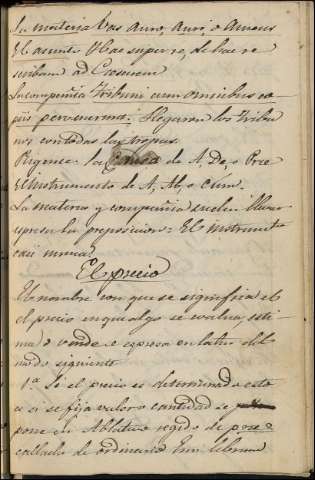 La materia Vas auro, auri, o Aureus
El asunto Hac super re, de hac re
scribam ad Cresuem
La compañia Tribuni cum omnibus co
piis pervenerunt. Llegaron los Tribu
nos con todas las tropas.
Rigense. La Causa de A, De, o Prae
El instrumento de A, Ab, o Cum.
La materia y compañia suelen llevar
expresa la preposicion: El instrumto
casi nunca.
El precio
El nombre con que se significa el
el precio en que algo se evalua, esti
ma o vende se expresa en latin del
modo siguiente
1ª Si el precio es determinado esto
es si se fija valor o cantidad se
pone en Ablativo regido de pro
callada de ordinario Emi librum